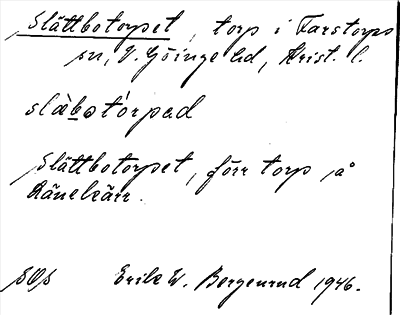 Slättbotorpet, torp i Farstorps
sn, V. Göinge hd, Krist. l.
slä̀botórpad
Slättbotorpet, förr torp på
Ränekärr.
SOS Erik W. Bergenrud 1946.